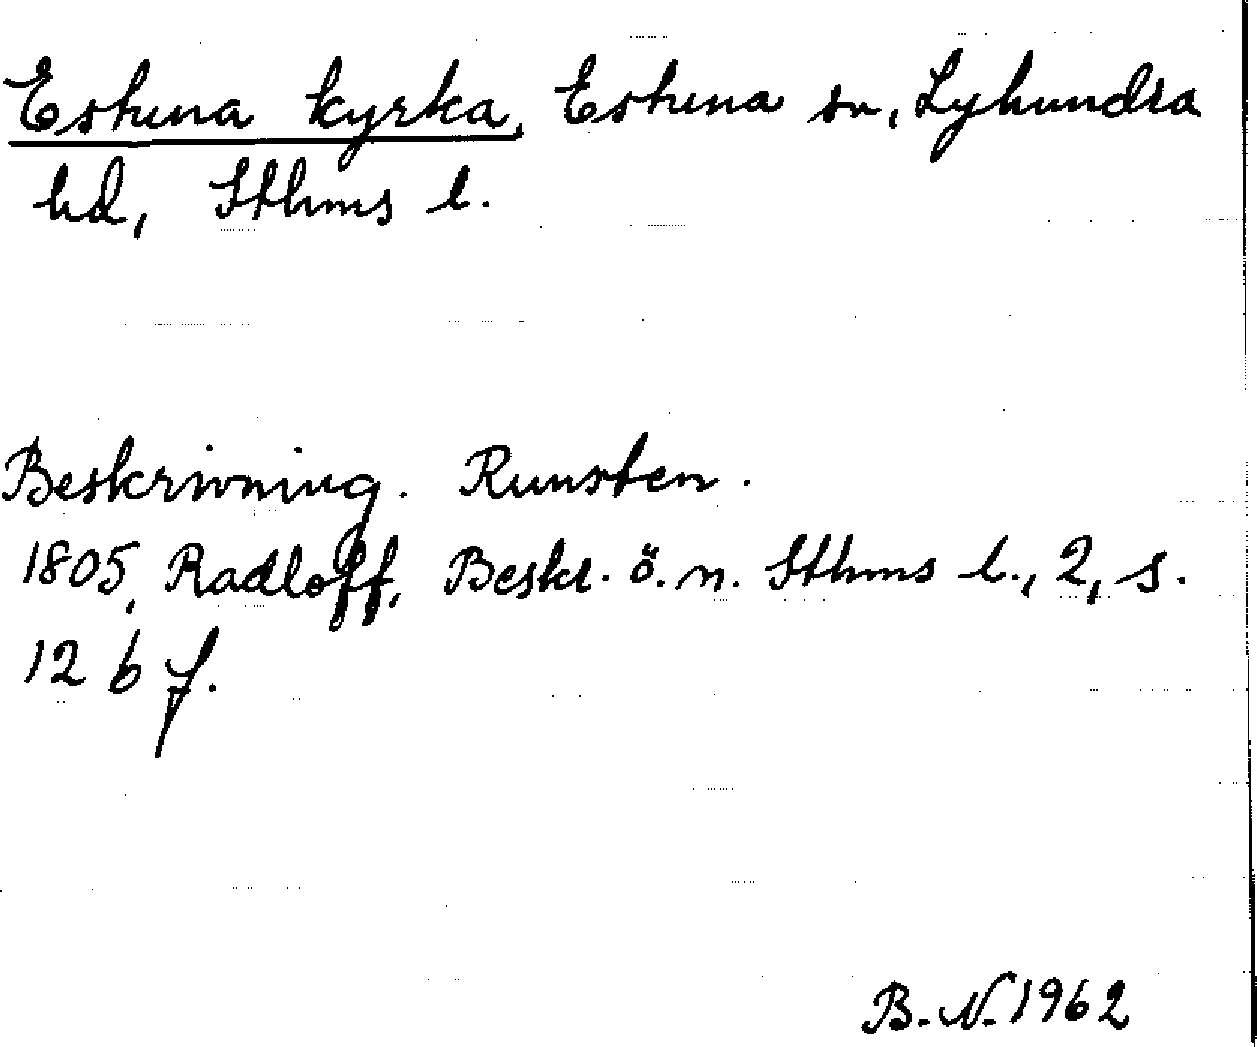 Estuna kyrka, Estuna sn, Lyhundra
hd, Sthms l.
Beskrivning. Runsten.
1805, Radloff, Beskr. ö. n. Sthms l., 2, s.
126 f.
B.N. 1962